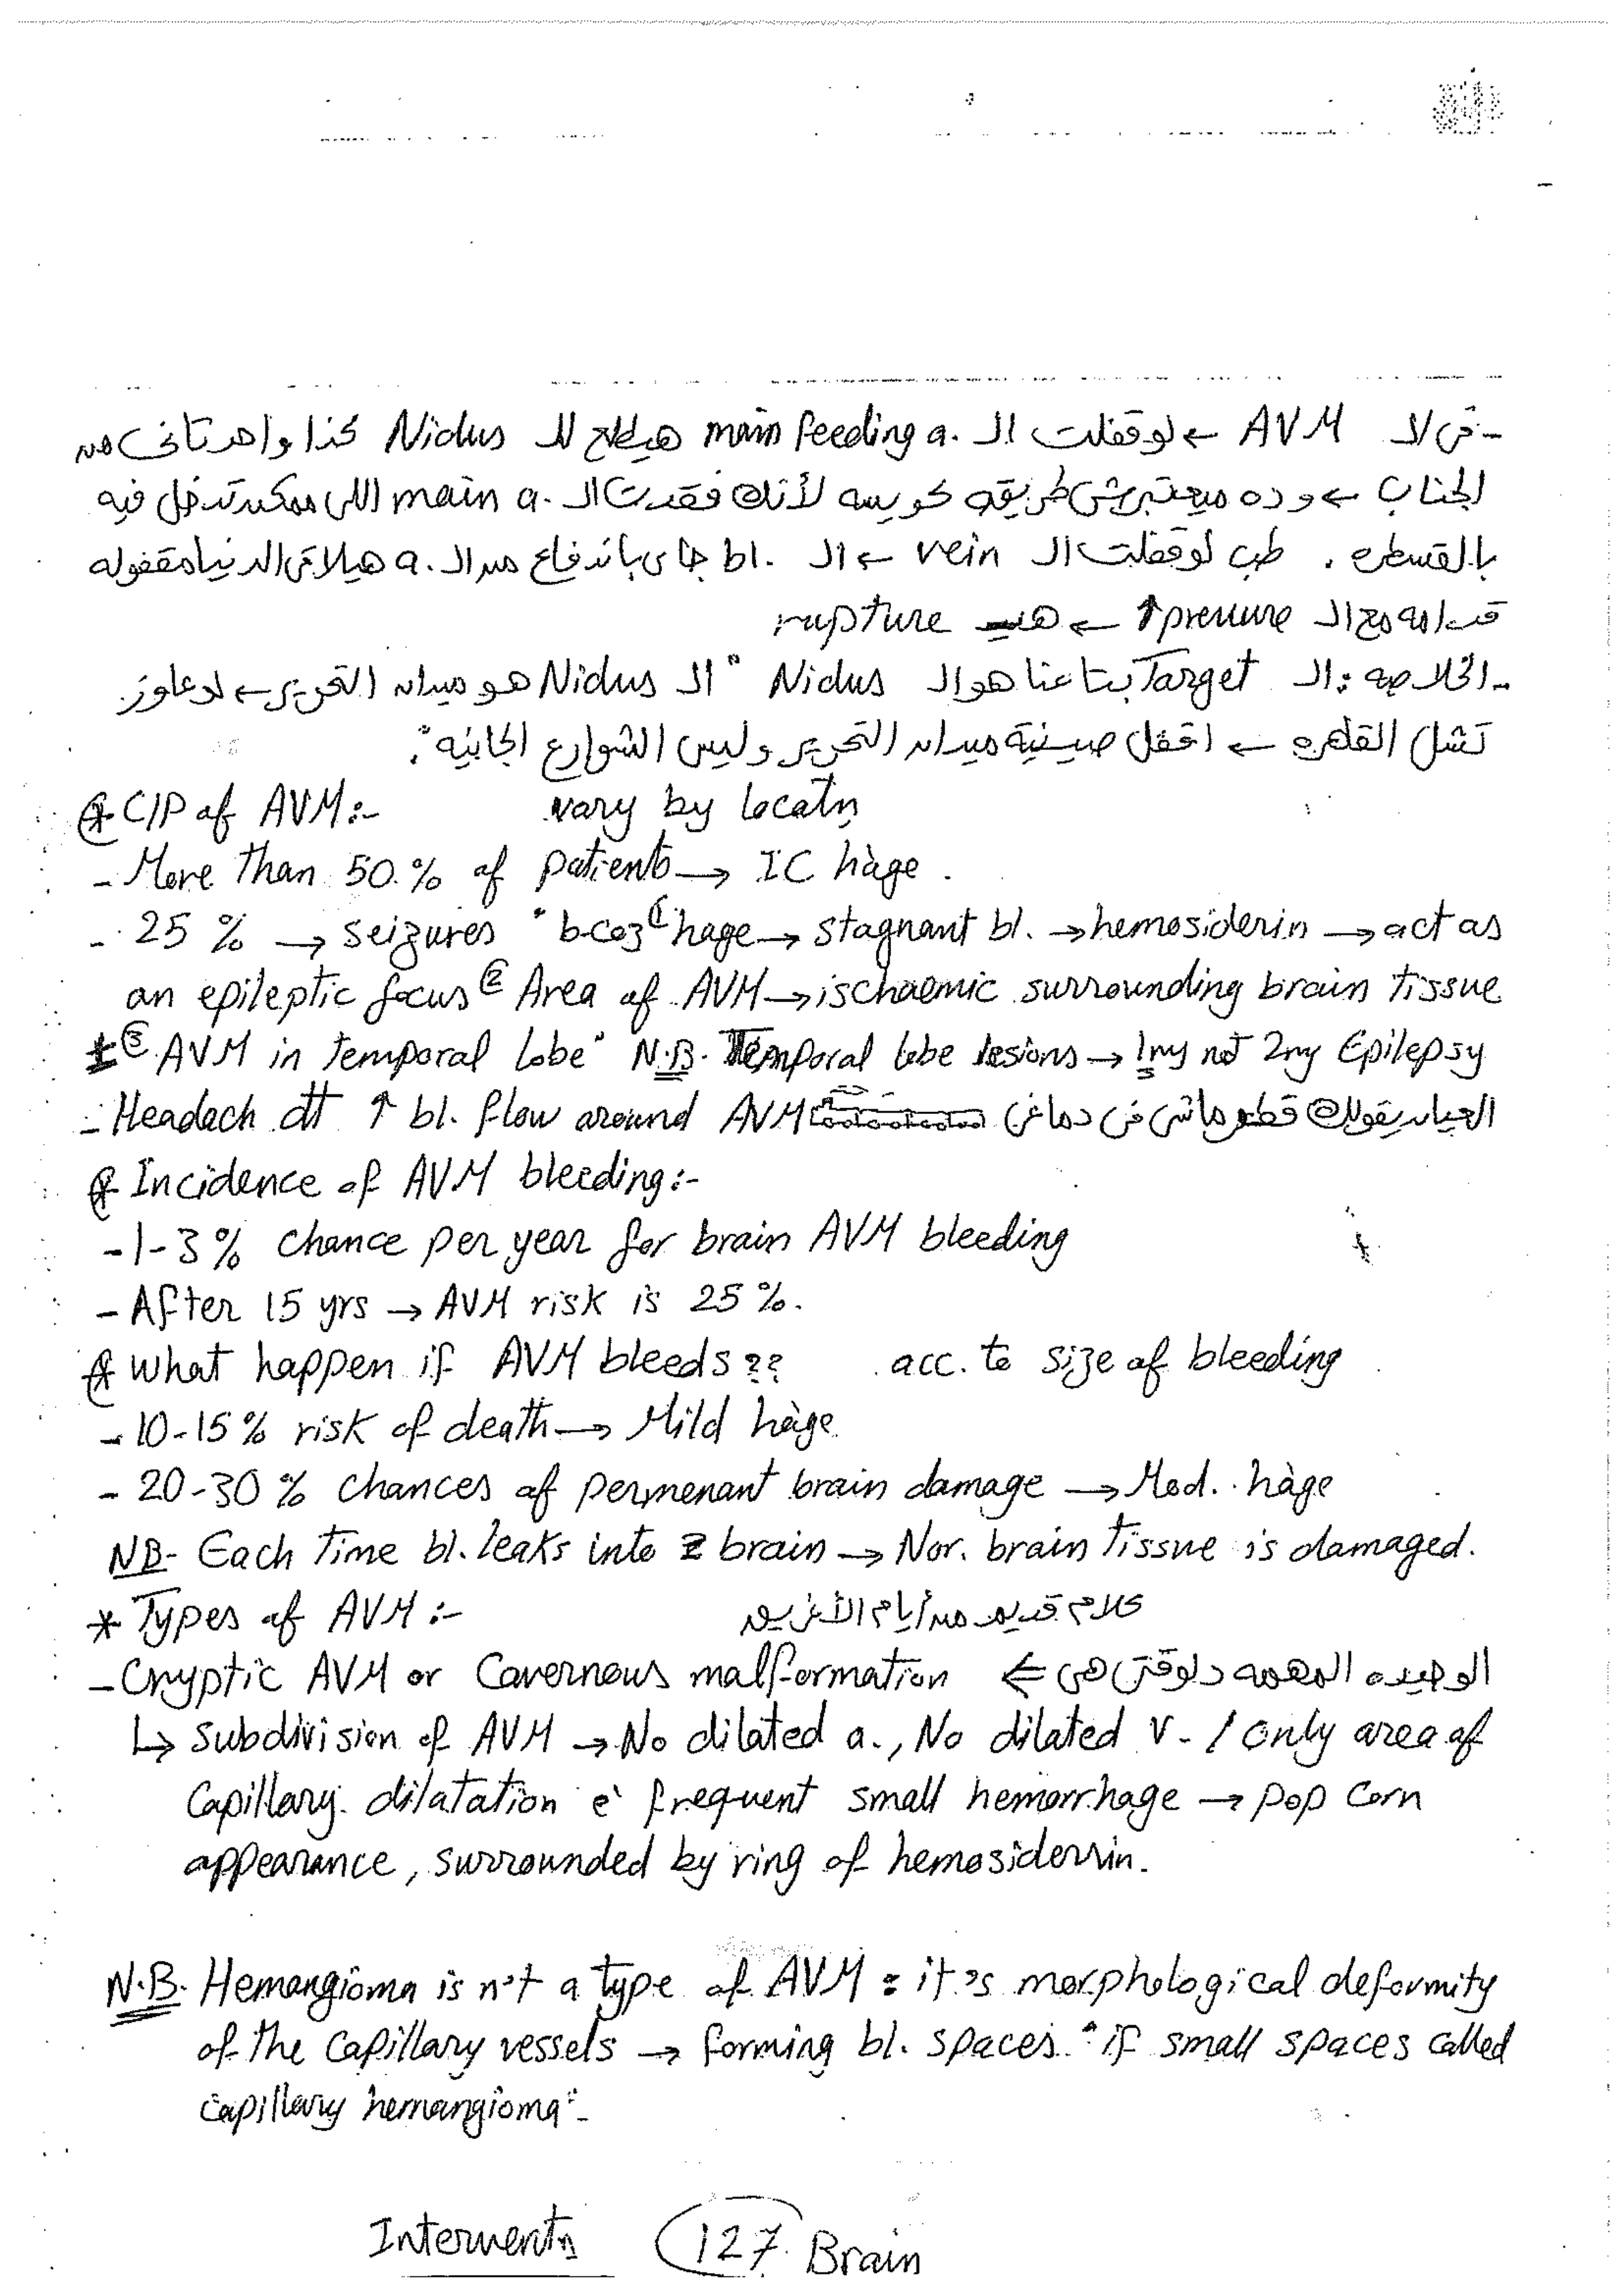 - في الـ AVM ← لو قفلت الـ main feeding a. هيطلع للـ Nidus كذا واحد تاني من
الجناب ← وده ميعتبرش طريقه كويسه لأنك فقدت الـ main a. اللي ممكن تدخل فيه
بالقسطره . طب لو قفلت الـ vein ← الـ bl. جاي باندفاع من الـ a. هيلاقي الدنيا مقفوله
قدامه مع الـ pressure ↑ ← هيـ rupture
- الخلاصه : الـ Target بتاعنا هو الـ Nidus " الـ Nidus هو ميدان التحرير ← لو عاوز
تشل القاهره ← اقفل صينية ميدان التحرير وليس الشوارع الجانبيه ".
* C/P of AVM :- vary by locatn
- More than 50 % of patients → IC hàge .
- 25 % → seizures " b-coz ① hage → stagnant bl. → hemosiderin → act as
an epileptic focus ② Area of AVM → ischaemic surrounding brain tissue
± ③ AVM in temporal lobe " N.B. Temporal lobe lesions → 1ry not 2ry Epilepsy
- Headach dt ↑ bl. flow around AVM العيان يقولك قطر ماشي في دماغي
* Incidence of AVM bleeding :-
- 1-3 % chance per year for brain AVM bleeding
- After 15 yrs → AVM risk is 25 %.
* what happen if AVM bleeds ?? acc. to size of bleeding
- 10-15 % risk of death → Mild hàge
- 20-30 % chances of permenant brain damage → Mod. hàge
NB- Each time bl. leaks into z brain → Nor. brain tissue is damaged.
* Types of AVM :- كلام قديم من أيام الأغريق
- Cryptic AVM or Cavernous malformation ⇐ الوحيده المهمه دلوقتي هي
↳ subdivision of AVM → No dilated a., No dilated v. / only area of
Capillary dilatation e` frequent small hemorrhage → pop corn
appearance, surrounded by ring of hemosiderrin.
N.B. Hemangioma is n't a type of AVM : it's morphological deformity
of the capillary vessels → forming bl. spaces " if small spaces called
capillary hemangioma " -
Interventn 127 Brain